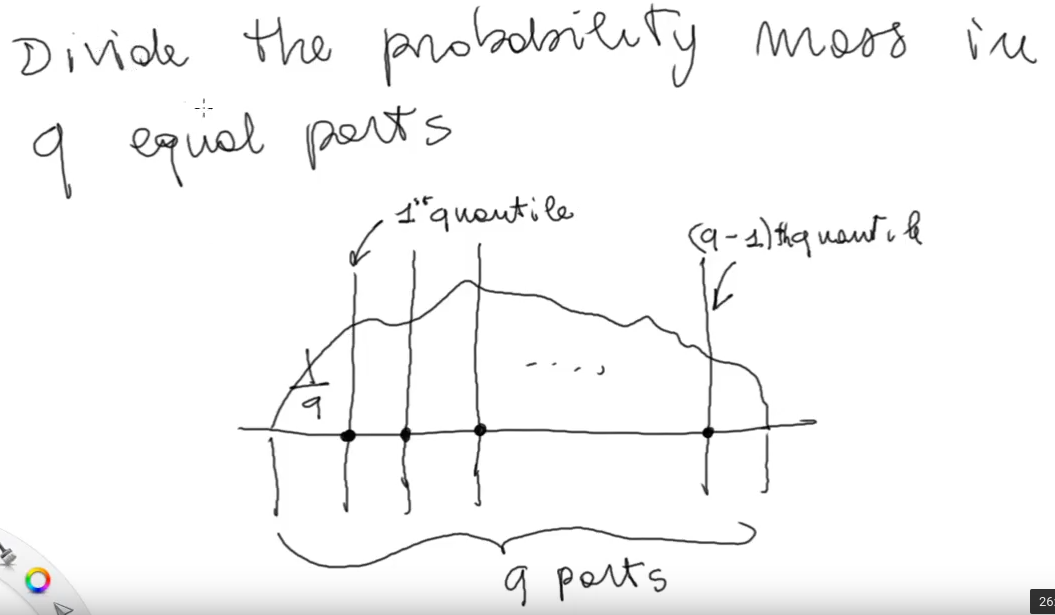 Divide the probability mass in
q equal parts
1st quantile
(q-1)th quantile
1/q
....,
q parts
26